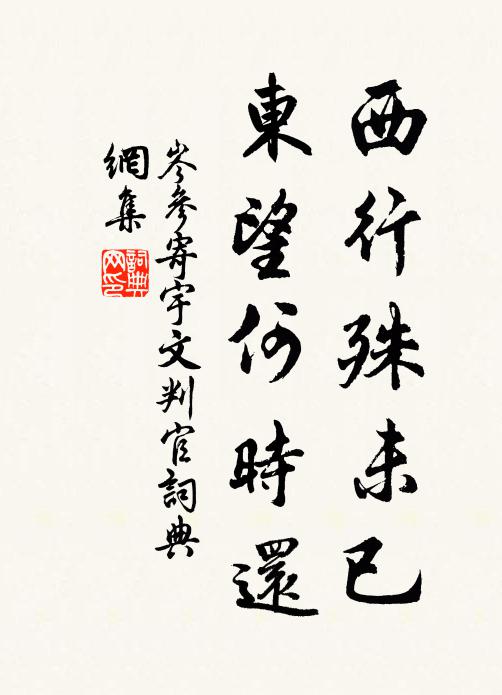 西行殊未已
東望何時還
岑參寄宇文判官詞典
網集
詞典
网印